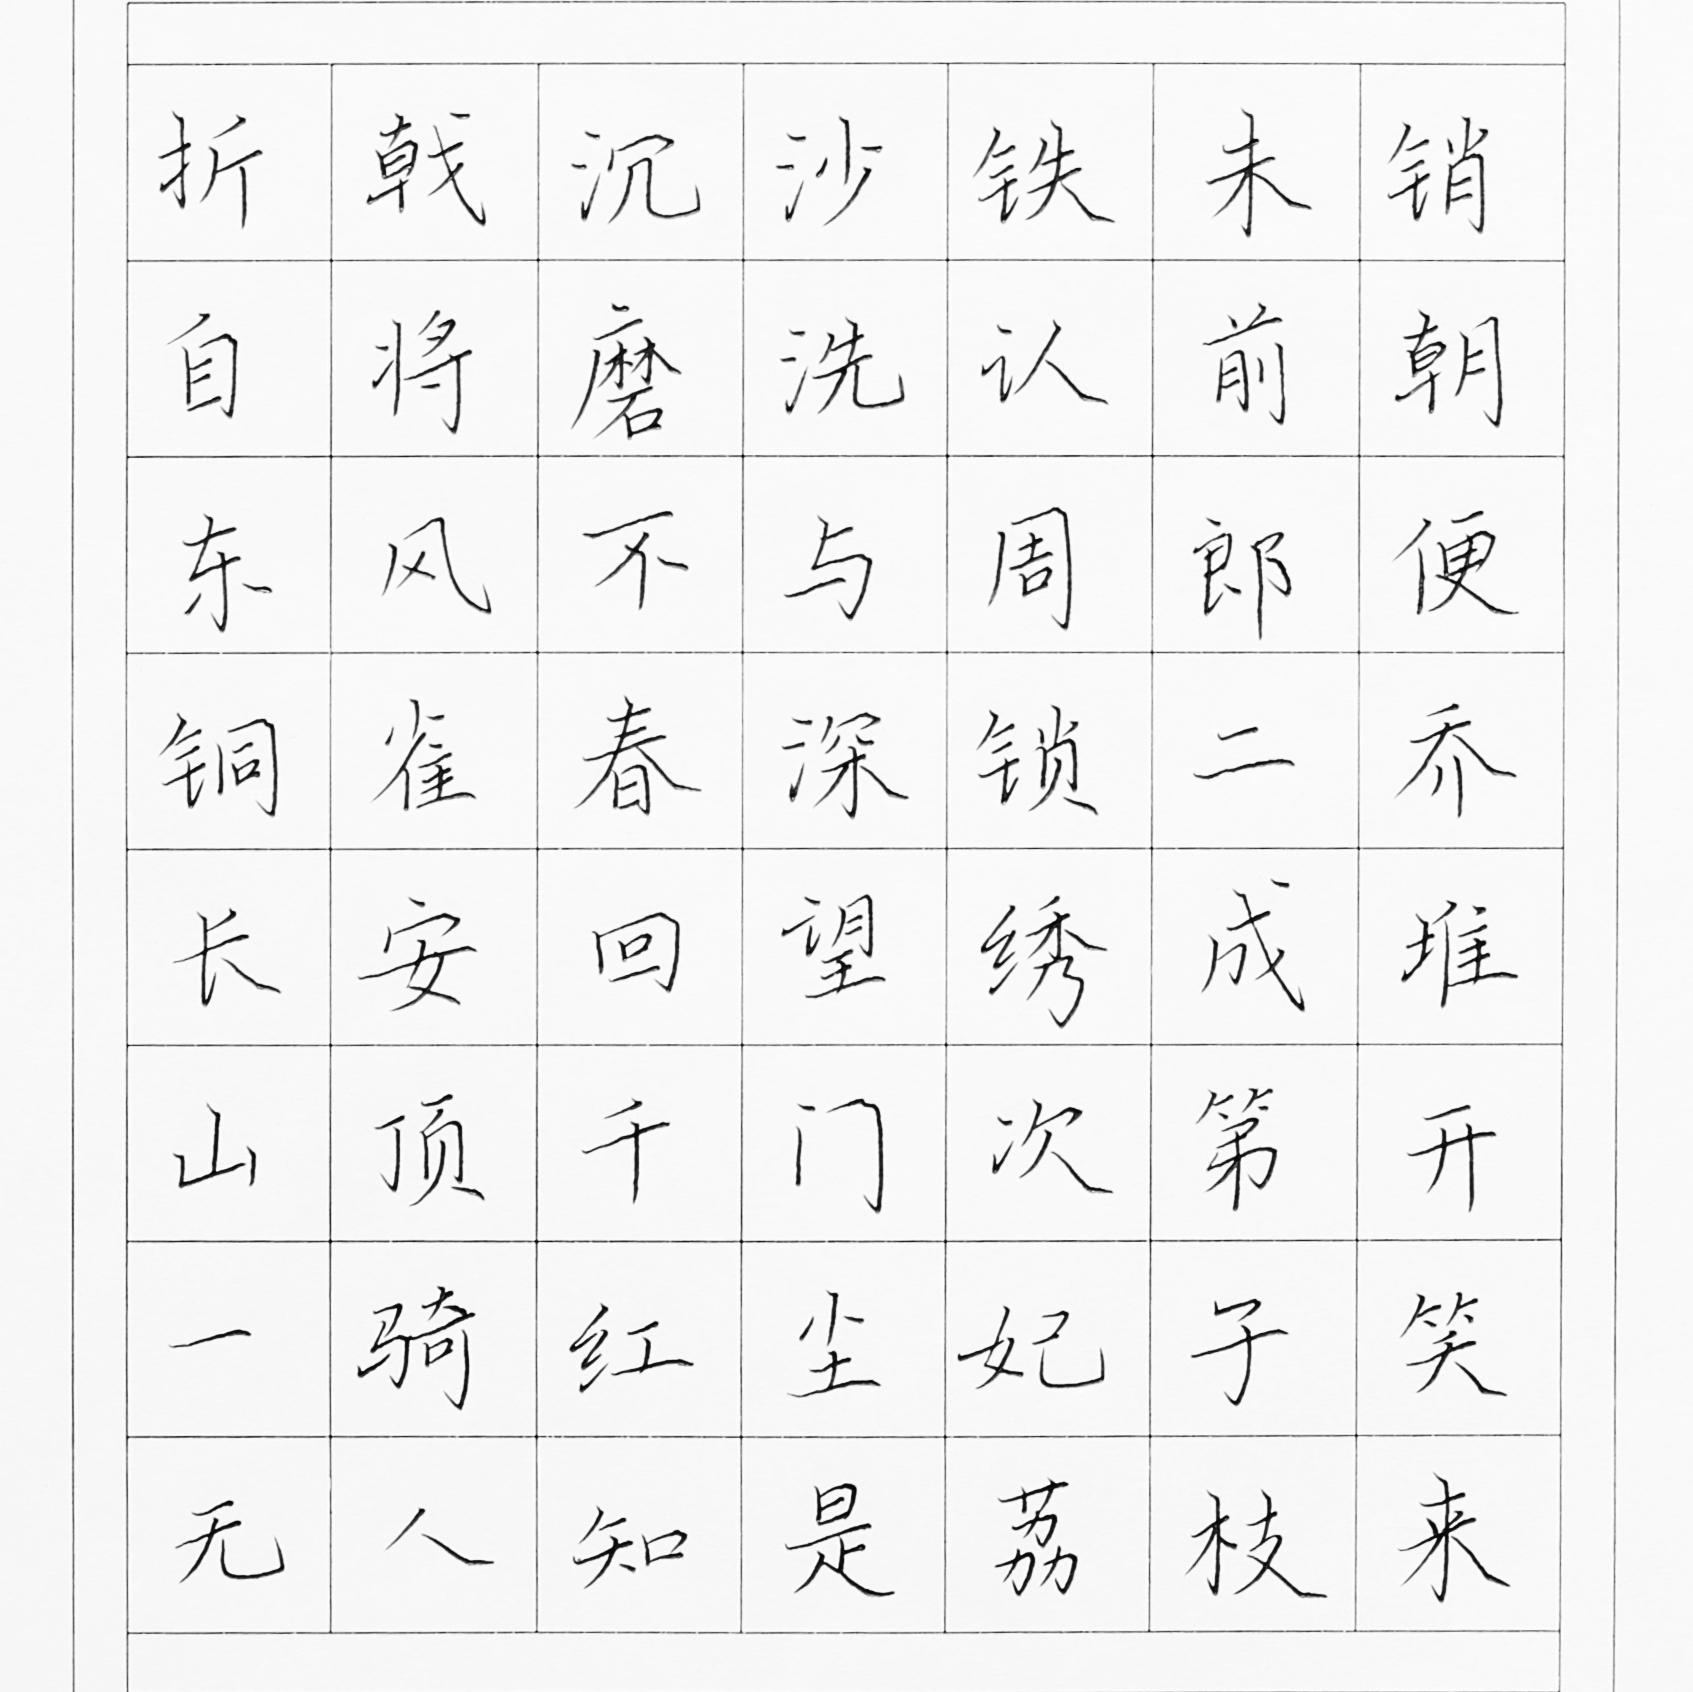 折戟沉沙铁未销
自将磨洗认前朝
东风不与周郎便
铜雀春深锁二乔
长安回望绣成堆
山顶千门次第开
一骑红尘妃子笑
无人知是荔枝来